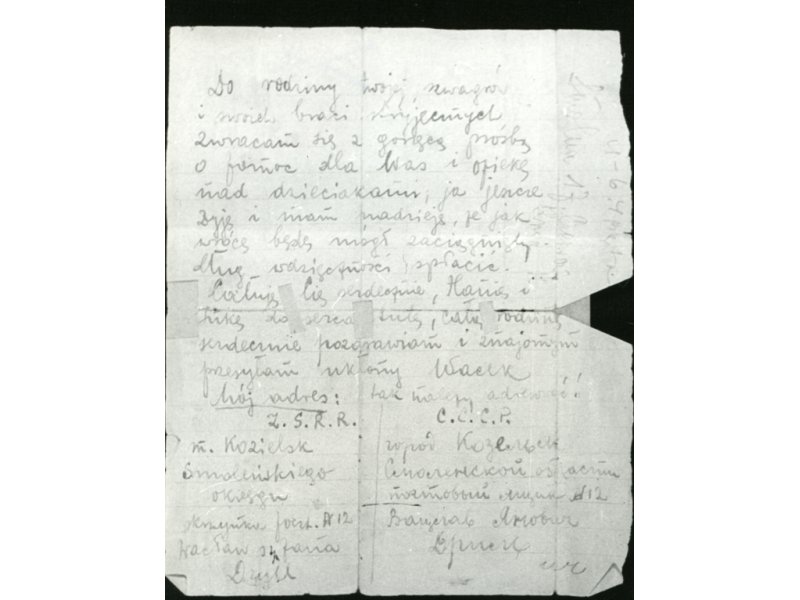 Do rodziny twojej szwagrów
i swoich braci stryjecznych
zwracam się z gorącą prośbą
o pomoc dla Was i opiekę
nad dzieciakami, ja jeszcze
żyję i mam nadzieję, że jak
wrócę będę mógł zaciągnięty
dług wdzięczności spłacić.
Całuję Cię serdecznie, Hanię i
do serca tulę, całą rodzinę
serdecznie pozdrawiam i znajomym
przesyłam ukłony Wacek
Mój adres: tak należy adresować!
Z.S.R.R. С.С.С.Р.
m. Kozielsk город Козельск
Smoleńskiego Смоленской области
okręgu почтовый ящик №12
skrzynka poczt. №12 Вацлав Янович
Wacław syn Jana